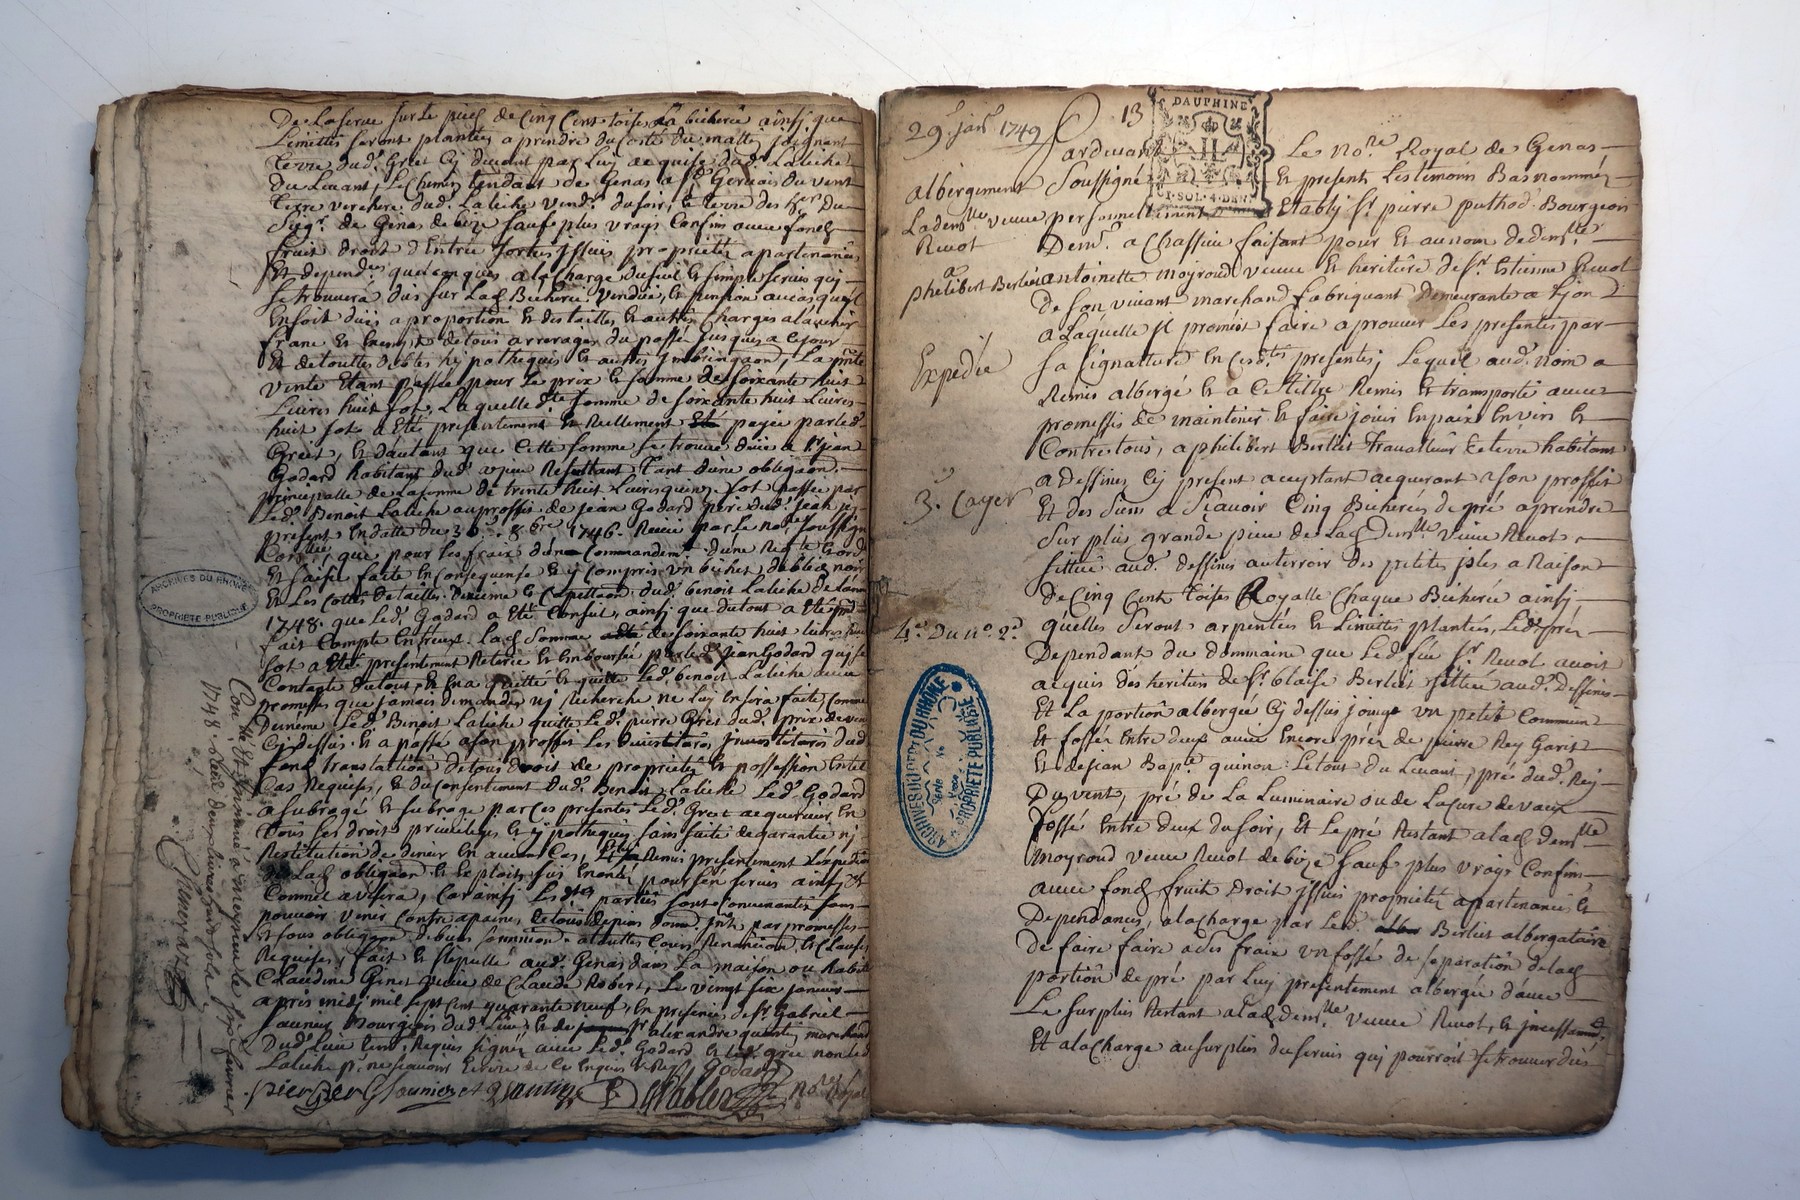 De Laserve sur le pied de Cinq Cent toises La bicherée ainsy que
Limittes seront plantées a prendre du Costé du mattin joignant
terre dud. Gret Cy devant par Luy acquise dud. Laliche
du Levant, Le Chemin tendant de Genas a St Gervais du vent
terre verchere dud. Laliche vendr. du soir, & terre des hers du
Seigr. de Genas de bize sauf plus vrays Confins avec fonds
fruit droit d'Entrée sorties Issües proprietés apartenances
Et dependces quelconques, a la Charge du seul & simple servis qui
se trouvera dus sur Lad Bicherée vendüe, & pension au cas quil
En soit düe a proportion & des tailles & autres Charges a la venir
franc & exempte de tous arrerages du passé jusques a ce jour
Et de touttes debtes hypotheques & autres La pnte
vente Etant passée pour Le prix & somme de soixante huit
Livres huit sol, Laquelle de somme de soixante huit Livres
huit sol a Eté presentement & Reellement payée par led.
Gret, & d'autant que Cette somme se trouve düe a Sr jean
Godard habitant dud. Resultant Tant d'une obligaon.
principalle de La somme de trente huit Livres quinze sol passée par
Led. Benoit Laliche au proffit de jean Godard pere dud. jean icy
present En datte du 30 8bre 1746. Receu par Le nore soussigné
Conllée, que pour les fraix d'un Commandement d'une
Et saisie faite En Consequence & y Compris un bichet de bled noir
Et Les Cottes de tailles dud. benoit Laliche de L'année
1748. que Led. Godard a Eté Consul, ainsy que du tout a Eté
fait Compte Entreux. Lad Somme de soixante huit livres huit
sol a Eté presentement Retirée & Emboursée par led. jean Godard qui se
Contente du tout, & En a quitté & quitte Led. benoit Laliche avec
promesses que jamais demande ny Recherche ne luy En sera faite, Comme
de meme Led. Benoit Laliche quitte Led. pierre Gret dud. prix de vente
Cy dessus. & a passé a son proffit Les devestitures Investitures dud
fond translaction de tous droit de proprieté & possession En tel
Cas Requises, & du Consentement dud. Benoit Laliche Led. Godard
a subrogé & subroge par Ces presentes Led. Gret acquereur En
Tous ses droits privileges & hypotheques sans suite de garantie ny
Restitution de denier En aucun Cas, Remis presentement L'expedition
de Lad obligaon & Exploits sus Enoncé pour s'en servir ainsy &
Comme avisera, Car ainsy Lesd. parties sont Convenantes sans
pouvoir venir Contre a paine de tous depens Domm. Intts par promesses
Et sous obligaon. de biens soumission a touttes Cours Renonciaon & Clauses
Requises, fait & Stipullé aud. Genas dans La maison ou habite
Claudine Ginet veuve de Claude Robert, Le vingt six janvier
apres midi mil sept cent quarante neuf, En presence de Sr Gabriel
Saunier Bourgeois dud. Lieu, & de Sr alexandre quantin marchand
Dud. Lieu tem. Requis signés avec Led. Godard & Led. gret non Led.
Laliche pr. ne sçavoir Ecrire de Ce Enquis & Req.
pier Gret Saunier A quantin Godard
nore Royal
ARCHIVES DU RHÔNE
PROPRIÉTÉ PUBLIQUE
Conllé Et Insinué a meyzieu le six fevrier
1748. Recu deux livres huit sols
29e janr 1749
13
DAUPHINE
1·SOL·4·DEN
albergement
Lademlle veuve
Revot
a
philibert Berliet
Expedié
3e Cayer
4e. Du no. 2d.
ARCHIVES DU DEPT DU RHÔNE
PROPRIÉTÉ PUBLIQUE
Pardevant Le Nore Royal de Genas
Soussigné Et presents Les temoins Bas nommés
personnellement Etably Sr. pierre puthod Bourgeois
Demt. a Chassieu faisant pour Et au nom de demlle.
antoinette Moyroud veuve Et heritiere de Sr. Estienne Revot
de son vivant marchand fabriquant Demeurante a Lyon
a Laquelle Il promest faire aprouver Les presentes par
sa signature En cesdtes presentes, Lequel aud. Nom a
Remis albergé & a Ce tittre Remis & transporté avec
promesses de maintenir & faire jouir En paix Envers &
Contre tous, a philibert Berliet Travailleur de terre habitant
a Dessines Cy present acceptant acquerant a son proffit
Et des Siens a Sçavoir Cinq Bicherées de pré a prendre
Sur plus grande piece de Lad Demlle. veuve Revot
sittuée aud. Dessines au terroir des petites jsles a Raison
de Cinq Cent Toises Royalle Chaque Bicherée ainsy
quelles Seront arpentées & Limittes plantées, Led. pré
Dependant du dommaine que Led. feu Sr. Revot avoit
acquis des heritiers de Sr. blaise Berliet sittué aud. Dessines
Et La portion albergée Cy dessus jouige un petit Commun
Et fossés Entre deux avec Encore pres de pierre Rey Garit
Et de jean Bapte quinon Le tout du Levant, pré dud. Rey
Du vent, pré de La Luminaire ou de La Cure de vaux
fossé Entre deux du soir, Et Le pré Restant a lad Demlle
Moyroud veuve Revot de bize Sauf plus vrays Confins
avec fonds fruit Droit Issües proprietés apartenances &
Dependances, a la Charge par Led. Berliet albergataire
de faire faire a ses fraix un fossé de separation de lad
portion de pré par Luy presentement albergée d'avec
Le Surplus Restant a lad Demlle. veuve Revot, & incessament,
Et a la Charge au surplus du servis qui pourroit se trouver dus